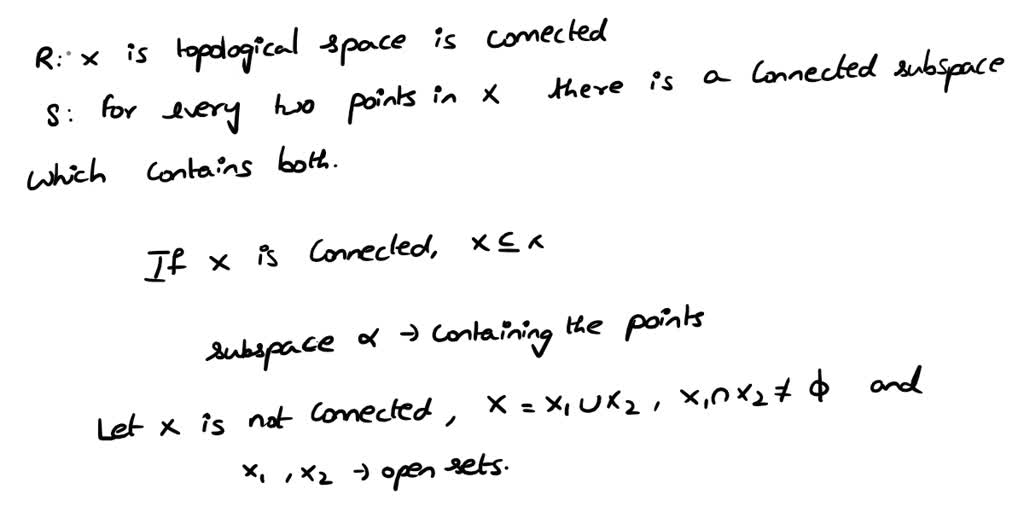 R: x is topological space is connected
S: for every two points in x there is a connected subspace
which contains both.
If x is connected, x ⊆ x
subspace α → containing the points
Let x is not connected, x = x₁ ∪ x₂, x₁ ∩ x₂ ≠ ϕ and
x₁, x₂ → open sets.